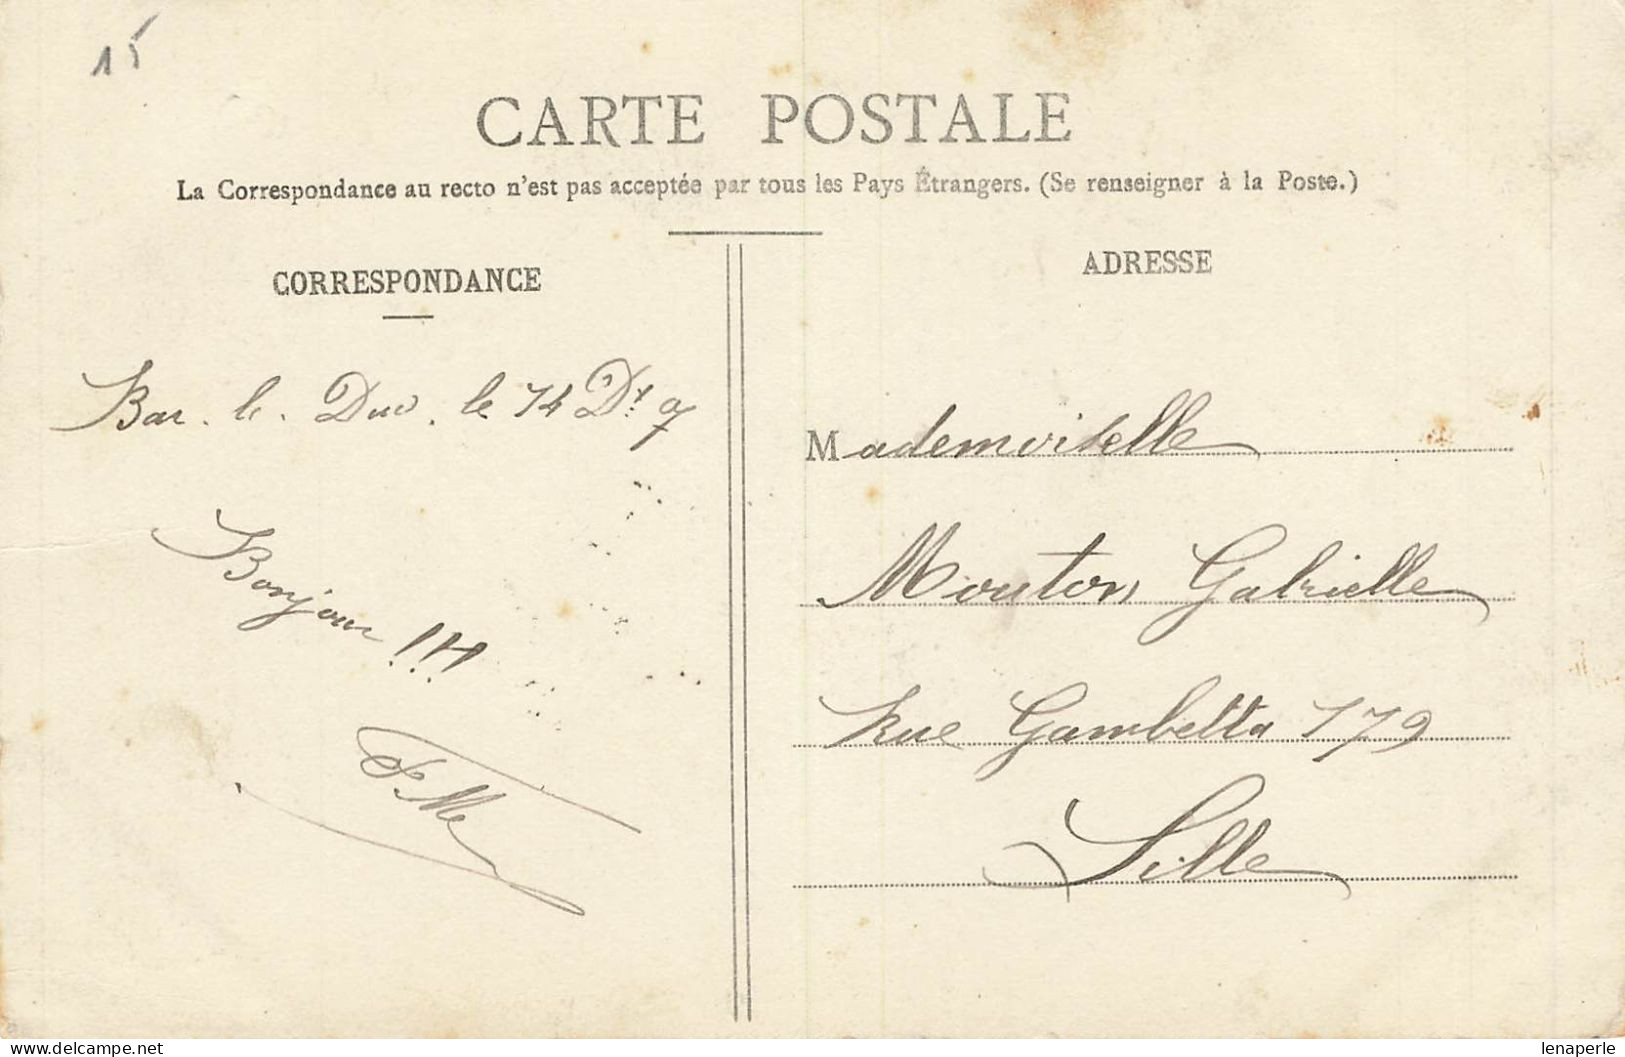 15
CARTE POSTALE
La Correspondance au recto n'est pas acceptée par tous les Pays Étrangers. (Se renseigner à la Poste.)
CORRESPONDANCE
ADRESSE
Bar. le. Duc. le 14 Dt. 07
Bonjour !!!
Mademoiselle
Mouton Gabrielle
Rue Gambetta 179
Lille
www.delcampe.net
lenaperle